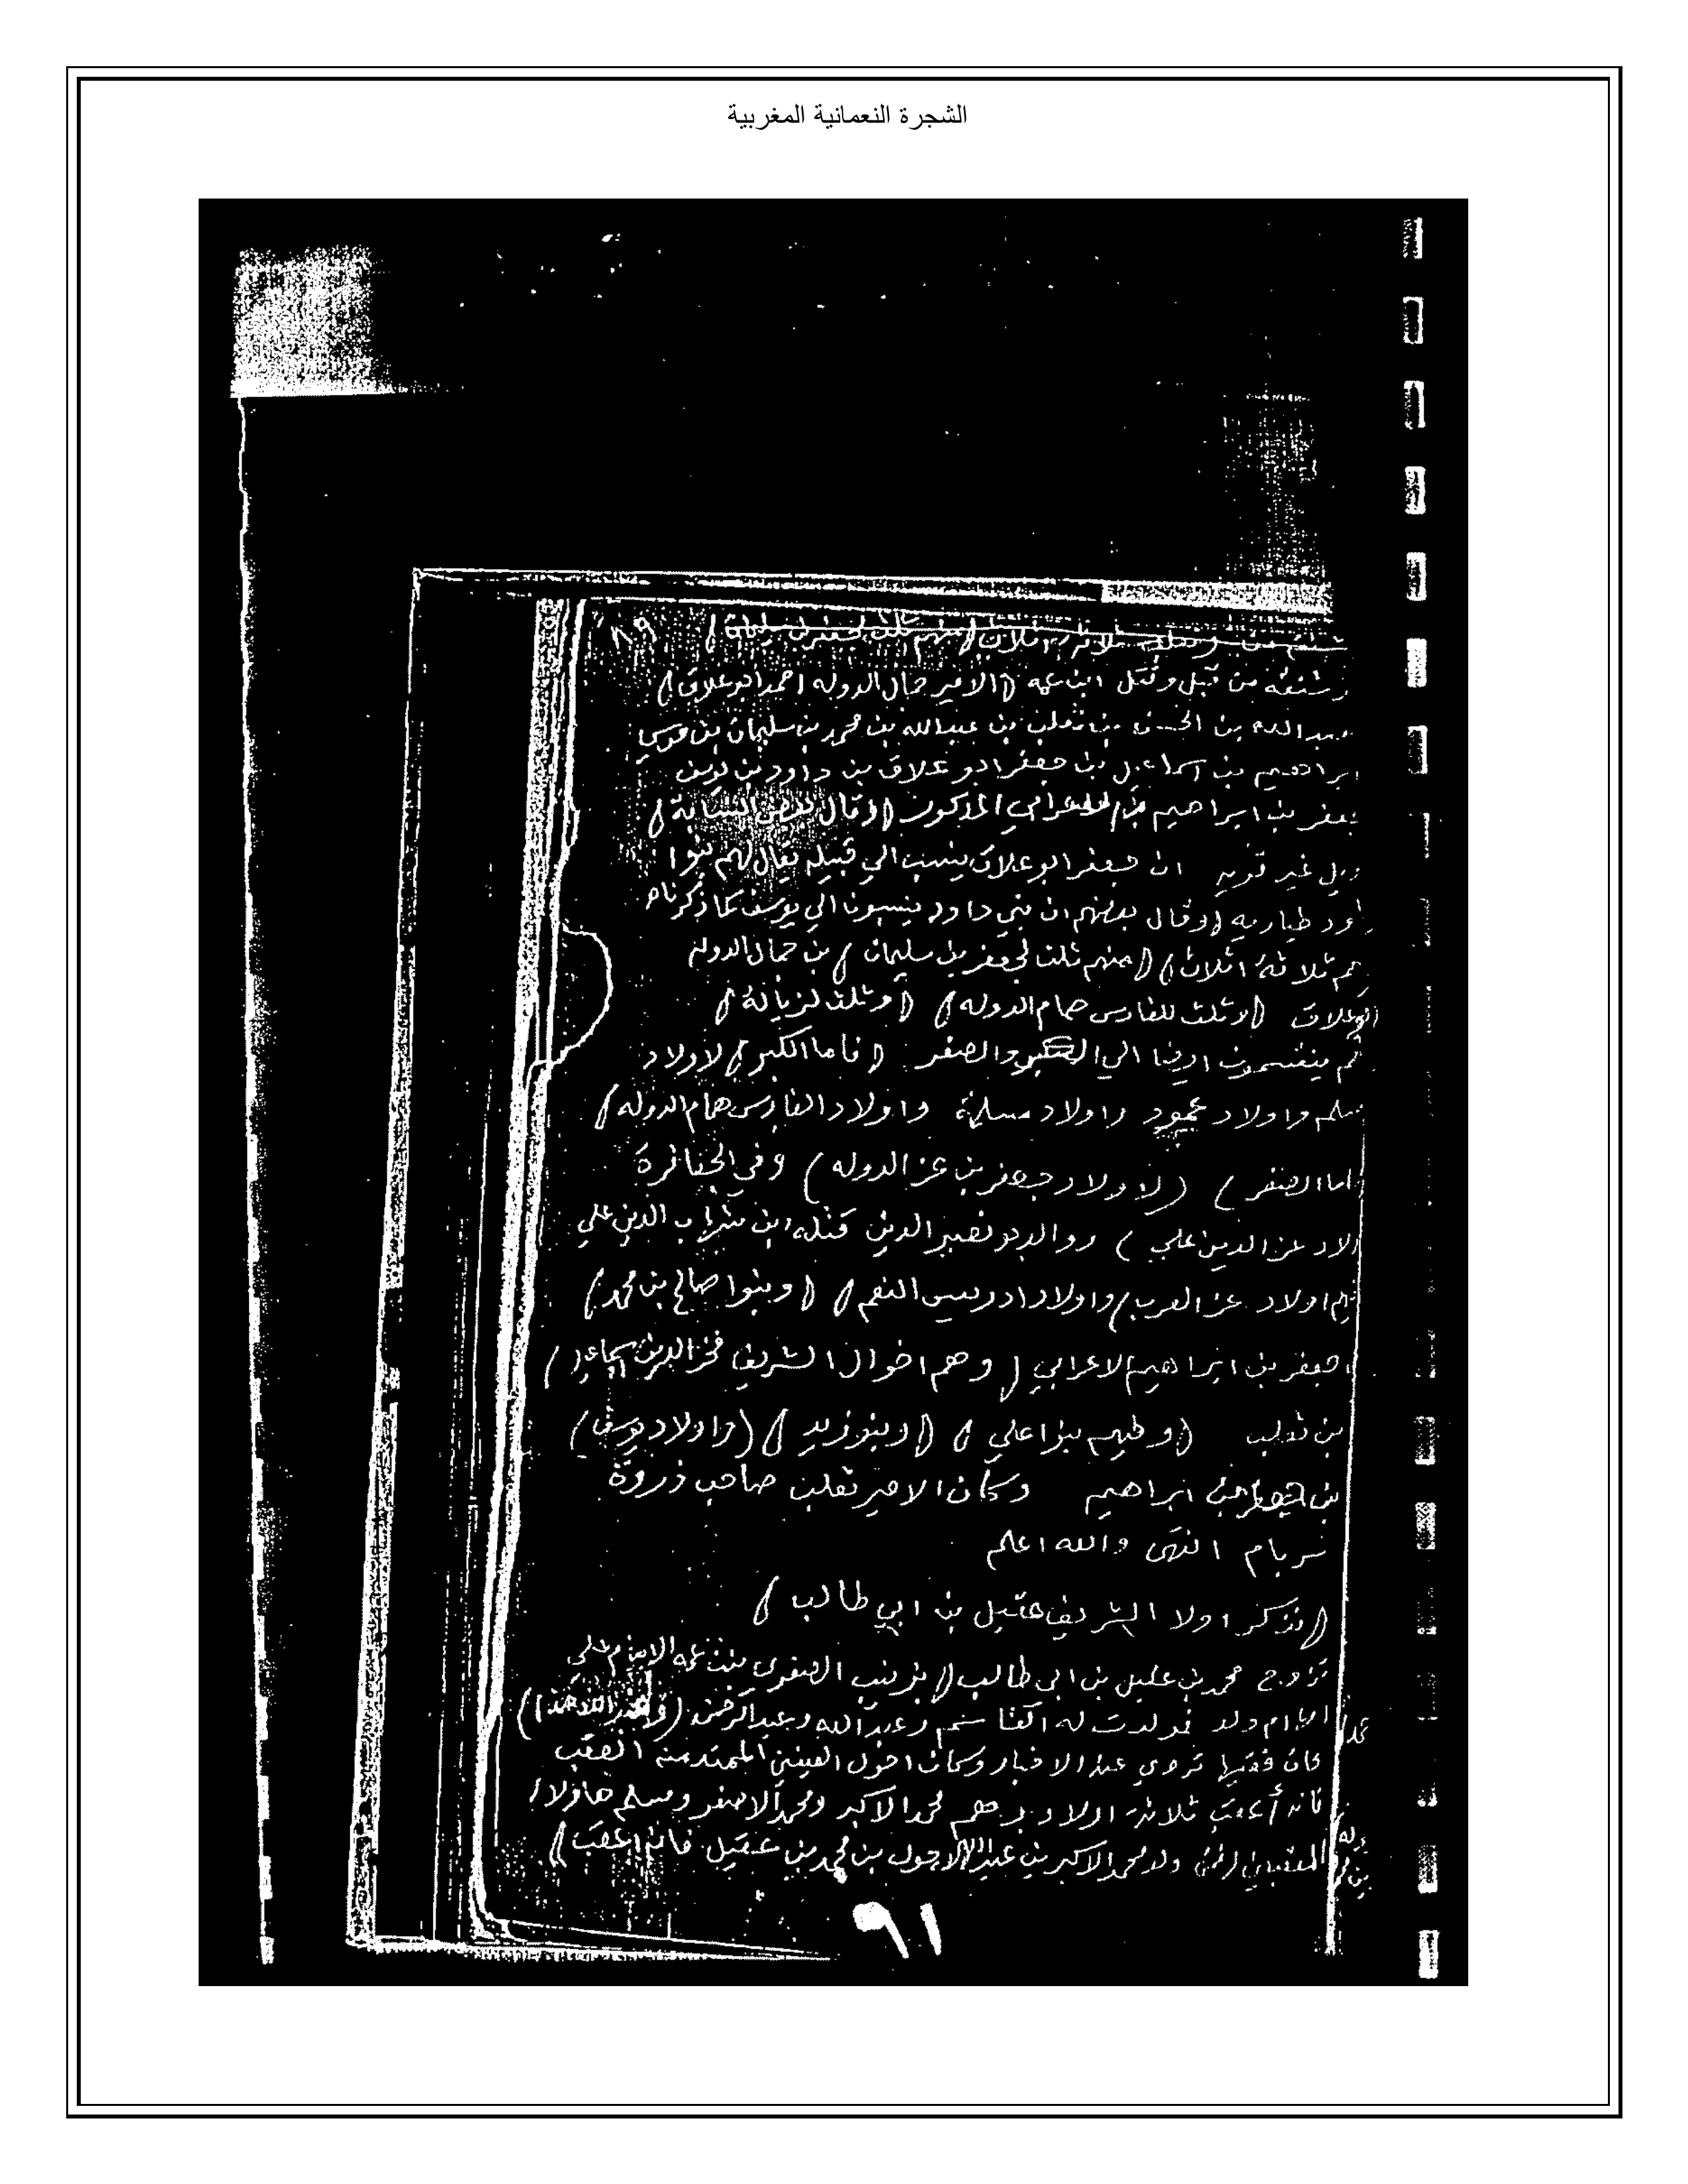 الشجرة النعمانية المغربية
٨٩
ثلاثة اثلاث (منهم ثلث لجعفر بن سليمان)
من قبل وقتل ابن عمه (الامير جمال الدوله احمد ابو علاق)
عبد الله بن الحسن بن ثعلب بن عبيد الله بن محمد بن سليمان بن موسي
ابراهيم بن اسماعيل بن جعفر ابو علاق بن داود بن
جعفر بن ابراهيم الاعرابي المذكور (وقال بعض النسابة)
غير قويه ان جعفر ابو علاق ينسب الي قبيله يقال لهم بنوا
طياريه (وقال بعضهم ان بني داود ينسبون الي يوسف كما ذكرناه
ثلاثة اثلاث) (منهم ثلث لجعفر بن سليمان) بن جمال الدوله
علاق (وثلث للفارس همام الدوله) (وثلث لزيالة)
ينقسمون ايضا الي الكبر والصغر (فاما الكبر) لاولاد
واولاد محمود واولاد مسلمة واولاد الفارس همام الدوله)
اما الصغر) (لاولاد جعفر بن عز الدوله) وفي الجعافرة
اولاد عز الدين علي) ووالدهو نصير الدين قتله ابن شهاب الدين علي
اولاد عز العرب) واولاد ادريس النعم) (وبنوا صالح بن محمد)
جعفر بن ابراهيم الاعرابي (وهم اخوال الشريف فخر الدين اسماعيل)
بن ثعلب (وفيهم بنوا علي) (وبنو زيد) (واولاد يوسف)
بن ابراهيم وكان الامير ثعلب صاحب ذروة
سربام انتهى والله اعلم
(نذكر اولا الشريف عقيل بن ابي طالب)
تزوج محمد بن عقيل بن ابي طالب (بزينب الصغرى بنت عمه الامام علي
ام ولد فولدت له القاسم وعبد الله وعبد الرحمن
كان فقيها تروي عنه الاخبار وكان احول العينين الممتد منه العقب
فانه أعقب ثلاثة اولاد وهم محمد الاكبر ومحمد الاصغر ومسلم
ولد محمد الاكبر بن عبد الله الاحول بن محمد بن عقيل فانه اعقب)
٩١